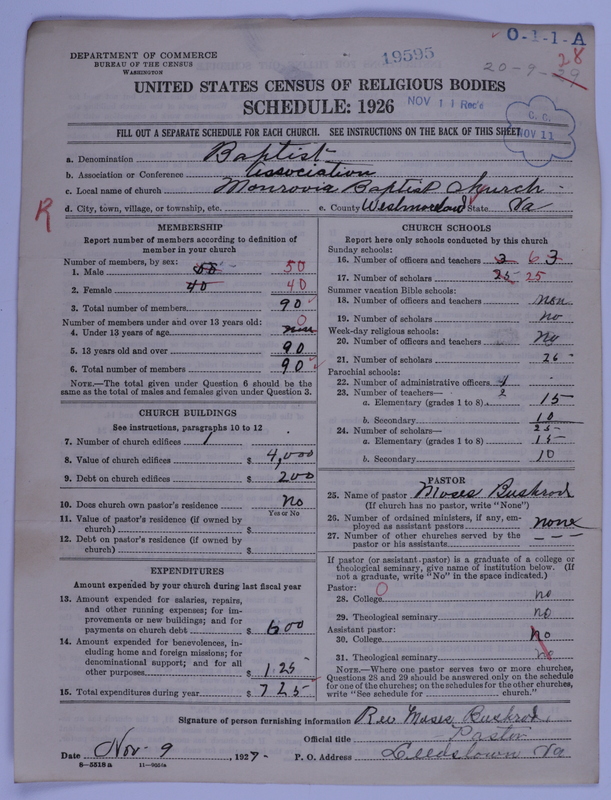 O-1-1-A
DEPARTMENT OF COMMERCE
BUREAU OF THE CENSUS
WASHINGTON
19595
28
20-9-29
UNITED STATES CENSUS OF RELIGIOUS BODIES
SCHEDULE: 1926
NOV 11 Rec'd
C. C.
NOV 11
FILL OUT A SEPARATE SCHEDULE FOR EACH CHURCH. SEE INSTRUCTIONS ON THE BACK OF THIS SHEET
a. Denomination Baptist
b. Association or Conference Association
c. Local name of church Monrovia Baptist Church
R
d. City, town, village, or township, etc. e. County Westmoreland State Va
MEMBERSHIP
Report number of members according to definition of
member in your church
Number of members, by sex:
1. Male 50 50
2. Female 40 40
3. Total number of members 90
Number of members under and over 13 years old: 0
4. Under 13 years of age
5. 13 years old and over 90
6. Total number of members 90
NOTE.—The total given under Question 6 should be the
same as the total of males and females given under Question 3.
CHURCH BUILDINGS
See instructions, paragraphs 10 to 12
7. Number of church edifices 1
8. Value of church edifices $ 4,000
9. Debt on church edifices $ 200
10. Does church own pastor's residence No
Yes or No
11. Value of pastor's residence (if owned by
church) $
12. Debt on pastor's residence (if owned by
church) $
EXPENDITURES
Amount expended by your church during last fiscal year
13. Amount expended for salaries, repairs,
and other running expenses; for im-
provements or new buildings; and for
payments on church debt $ 600
14. Amount expended for benevolences, in-
cluding home and foreign missions; for
denominational support; and for all
other purposes $ 125
15. Total expenditures during year $ 725
CHURCH SCHOOLS
Report here only schools conducted by this church
Sunday schools:
16. Number of officers and teachers 3 6 3
17. Number of scholars 25 25
Summer vacation Bible schools:
18. Number of officers and teachers non
19. Number of scholars no
Week-day religious schools:
20. Number of officers and teachers No
21. Number of scholars 26
Parochial schools:
22. Number of administrative officers
23. Number of teachers— 2
a. Elementary (grades 1 to 8) 15
b. Secondary 10
24. Number of scholars— 25
a. Elementary (grades 1 to 8) 15
b. Secondary 10
PASTOR
25. Name of pastor Moses Bushrod
(If church has no pastor, write "None")
26. Number of ordained ministers, if any, em-
ployed as assistant pastors none
27. Number of other churches served by the
pastor or his assistants
If pastor (or assistant pastor) is a graduate of a college or
theological seminary, give name of institution below. (If
not a graduate, write "No" in the space indicated.)
Pastor: 0
28. College no
29. Theological seminary no
Assistant pastor:
30. College no
31. Theological seminary no
NOTE.—Where one pastor serves two or more churches,
Questions 28 and 29 should be answered only on the schedule
for one of the churches; on the schedules for the other churches,
write "See schedule for church."
Signature of person furnishing information Rev Moses Bushrod
Official title Pastor
Date Nov. 9, 1927. P. O. Address Leedstown Va
8-5518a